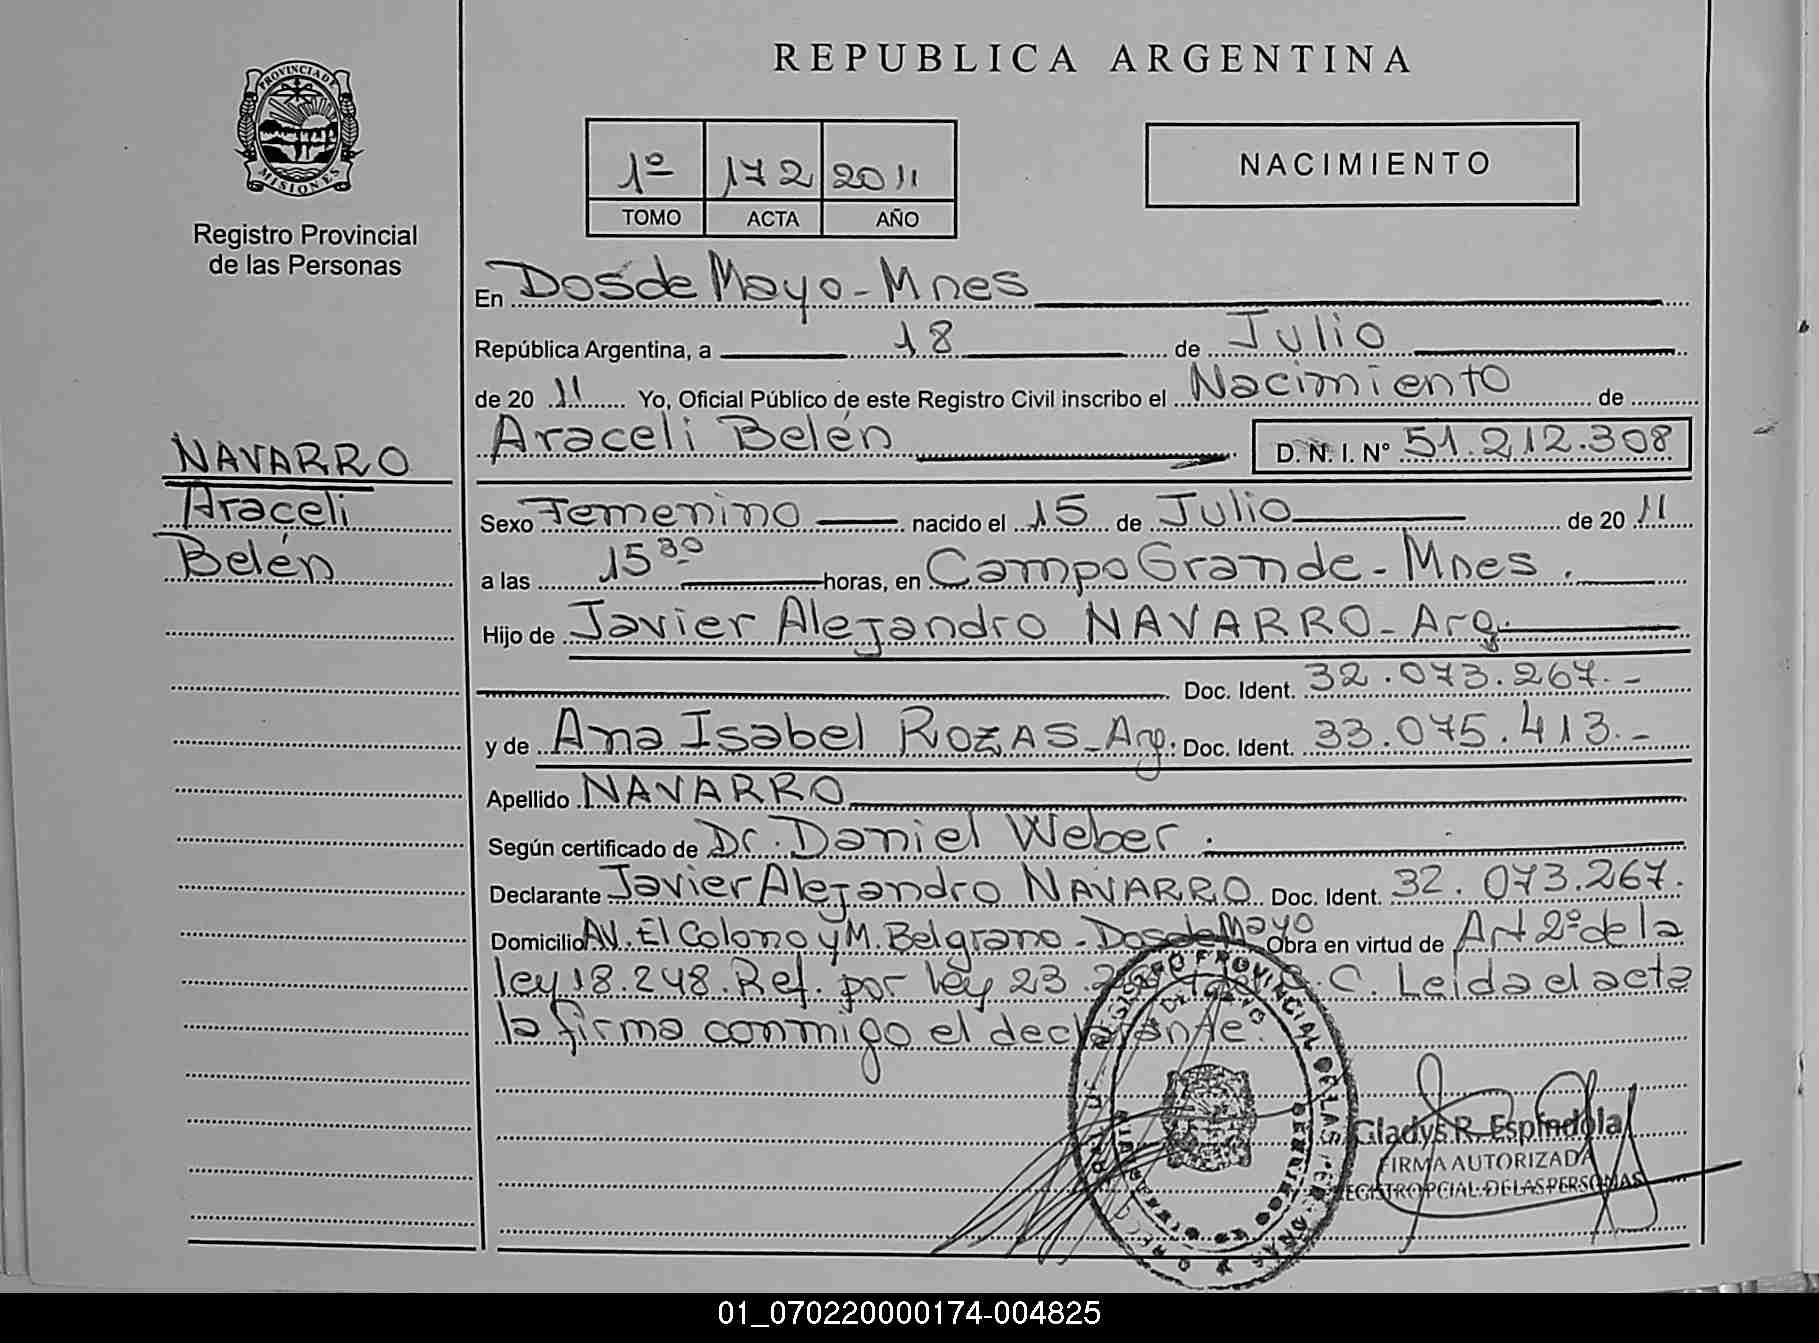 REPUBLICA ARGENTINA
PROVINCIA DE
MISIONES
Registro Provincial
de las Personas
1º 172 2011
TOMO ACTA AÑO
NACIMIENTO
En Dos de Mayo - Mnes
República Argentina, a 18 de Julio
de 20 11 Yo, Oficial Público de este Registro Civil inscribo el Nacimiento de
Araceli Belén D. N. I. Nº 51.212.308
NAVARRO
Araceli
Belén
Sexo Femenino nacido el 15 de Julio de 20 11
a las 15 30 horas, en Campo Grande - Mnes.
Hijo de Javier Alejandro NAVARRO - Arg.
Doc. Ident. 32.073.267.-
y de Ana Isabel ROZAS - Arg. Doc. Ident. 33.075.413.-
Apellido NAVARRO
Según certificado de Dr. Daniel Weber.
Declarante Javier Alejandro NAVARRO Doc. Ident. 32.073.267.
Domicilio AV. El Colono y M. Belgrano - Dos de Mayo Obra en virtud de Art 2º de la
ley 18.248. Ref. por ley 23. C. Leída el acta
la firma conmigo el declarante.
REGISTRO PROVINCIAL DE LAS PERSONAS
Gladys R. Espíndola
FIRMA AUTORIZADA
REGISTRO PCIAL. DE LAS PERSONAS
01_070220000174-004825